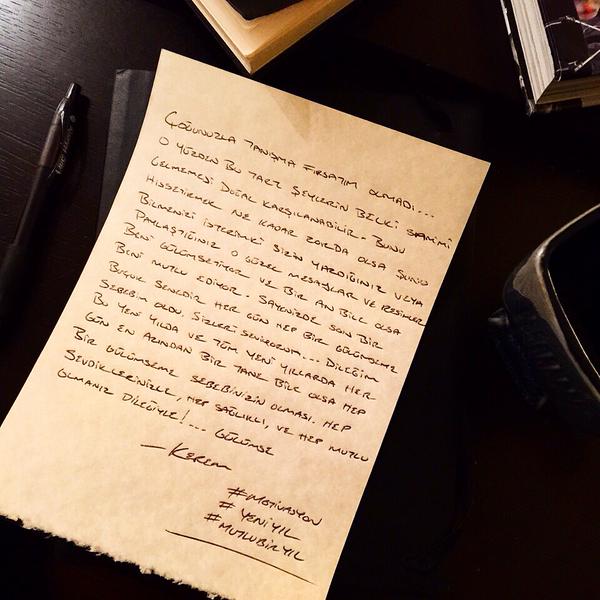 Çoğunuzla tanışma fırsatım olmadı...
O yüzden bu tarz şeylerin belki samimi
gelmemesi doğal karşılanabilir. Bunu
hissetirmek ne kadar zorda olsa şunu
bilmenizi isterimki sizin yazdığınız veya
paylaştığınız o güzel mesajlar ve resimler
beni gülümsetiyor ve bir an bile olsa
beni mutlu ediyor. Sayenizde son bir
buçuk senedir her gün hep bir gülümseme
sebebim oldu. Sizleri seviyorum... Dileğim
bu yeni yılda ve tüm yeni yıllarda her
gün en azından bir tane bile olsa hep
bir gülümseme sebebinizin olması. Hep
sevdiklerinizle, hep sağlıklı, ve hep mutlu
olmanız dileğiyle!... Gülümse
— Kerem
#motivasyon
#yeniyıl
#mutlubiryıl